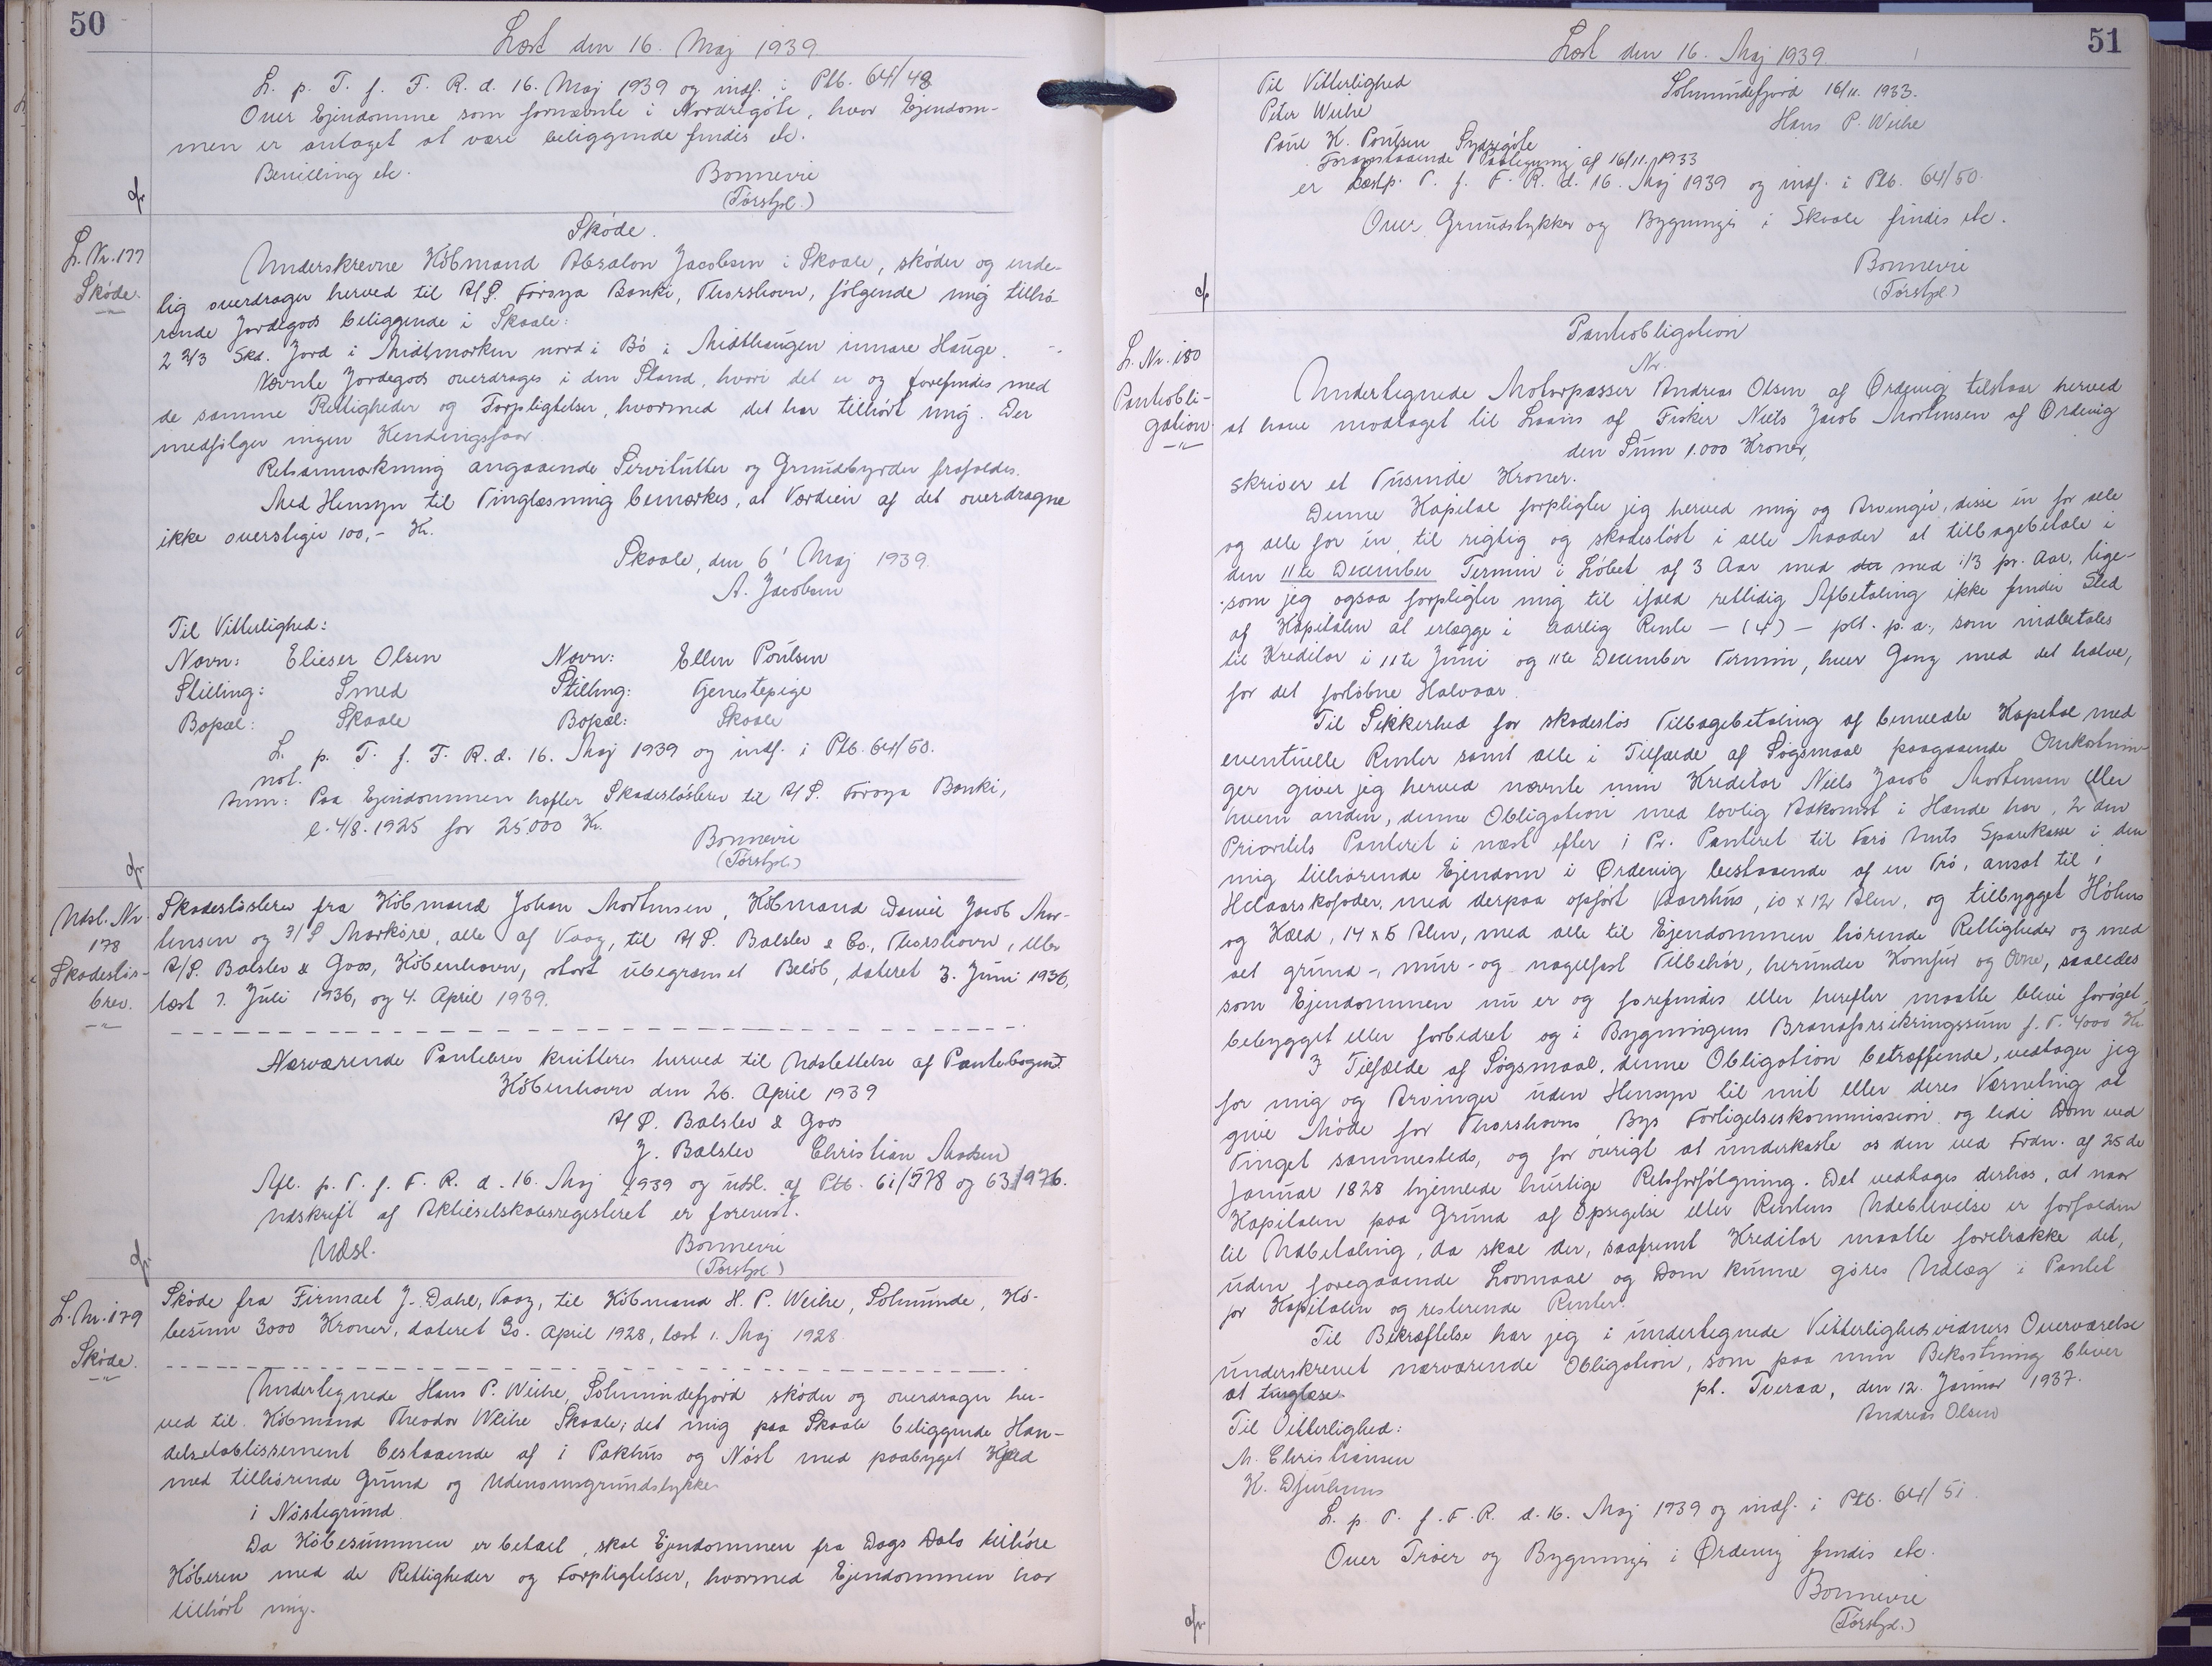 50
Læst den 16. Maj 1939.
L. p. T. f. F. R. d. 16. Maj 1939 og indf. i Ptb. 64/48
Over Ejendomme som fornævnte i Nordregöte, hvor Ejendom-
men er antaget at være beliggende findes etc.
Bevilling etc. Bonnevie
(Förstfpl.)
Sköde.
L. Nr. 177
Sköde.
Underskrevne Köbmand Absalon Jacobsen i Skaale, sköder og ende-
lig overdrager herved til A/S. Föroya Banki, Thorshavn, fölgende mig tilhö-
rende Jordegods beliggende i Skaale:
2 2/3 Skd. Jord i Midtmarken nord i Bö i Midthaugen innare Hauge.
Nævnte Jordegods overdrages i den Stand, hvori det er og forefindes med
de samme Rettigheder og Forpligtelser, hvormed det har tilhört mig. Der
medfölger ingen Hendingsfaar.
Retsanmærkning angaaende Servitutter og Grundbyrder frafaldes.
Med Hensyn til Tinglæsning bemærkes, at Værdien af det overdragne
ikke overstiger 100,- Kr.
Skaale, den 6' Maj 1939.
A. Jacobsen
Til Vitterlighed:
Navn: Elieser Olsen Navn: Ellen Poulsen
Stilling: Smed Stilling: Tjenestepige
Bopæl: Skaale Bopæl: Skaale
L. p. T. f. F. R. d. 16. Maj 1939 og indf. i Ptb. 64/50.
not.
Anm: Paa Ejendommen hæfter Skadeslösbrev til A/S. Föroya Banki,
l. 4/8. 1925 for 25000 Kr.
Bonnevie
(Förstfpl.)
Udsl. Nr.
178
Skadeslös-
brev.
Skadeslösbrev fra Köbmand Johan Mortensen, Köbmand Daniel Jacob Mor-
tensen og I/S Marköre, alle af Vaag, til A/S. Balslev & Co., Thorshavn, eller
A/S. Balslev & Goos, Köbenhavn, stort ubegrænset Belöb, dateret 3. Juni 1936,
læst 7. Juli 1936, og 4. April 1939.
Nærværende Pantebrev kvitteres herved til Udslettelse af Pantebogen.
Köbenhavn den 26. April 1939
A/S. Balslev & Goos
J. Balslev Christian Madsen
Afl. p. T. f. F. R. d. 16. Maj 1939 og udsl. af Ptb. 61/578 og 63/976.
Udskrift af Aktieselskabsregisteret er forevist.
Udsl. Bonnevie
(Förstfpl.)
L. Nr. 179
Sköde.
Sköde fra Firmaet J. Dahl, Vaag, til Köbmand H. P. Weihe, Solmunde, Kö-
besum 3000 Kroner, dateret 30. April 1928, læst 1. Maj 1928.
Undertegnede Hans P. Weihe, Solmundefjord sköder og overdrager her-
ved til Köbmand Theodor Weihe Skaale; det mig paa Skaale beliggende Han-
delsetablissement bestaaende af 1 Pakhus og Nöst med paabygget Kjæld
med tilhörende Grund og Udenomsgrundstykke
i Nöstegrund.
Da Köbesummen er betalt, skal Ejendommen fra Dags Dato tilhöre
Köberen med de Rettigheder og Forpligtelser, hvormed Ejendommen har
tilhört mig.
51
Læst den 16. Maj 1939.
Til Vitterlighed Solmundefjord 16/11. 1933.
Peter Weihe Hans P. Weihe
Poul K. Poulsen Sydregöte
Foranstaaende Paategning af 16/11. 1933
er læst p. T. f. F. R. d. 16. Maj 1939 og indf. i Ptb. 64/50.
Over Grundstykker og Bygninger i Skaale findes etc.
Bonnevie
(Förstfpl.)
Pantobligation
Nr.
L. Nr. 180
Pantobli-
gation.
Undertegnede Motorpasser Andreas Olsen af Ørdevig tilstaar herved
at have modtaget til Laans af Fisker Niels Jacob Mortensen af Ørdevig
den Sum 1.000 Kroner,
skriver et Tusinde Kroner.
Denne Kapital forpligter jeg herved mig og Arvinger, disse en for alle
og alle for en, til rigtig og skadeslöst i alle Maader at tilbagebetale i
den 11te December Termin i Löbet af 3 Aar med der med 1/3 pr. Aar, lige-
som jeg ogsaa forpligter mig til ifald rettidig Afbetaling ikke finder Sted
af Kapitalen at erlægge i aarlig Rente - (4) - pCt. p. a., som indbetales
til Kreditor i 11te Juni og 11te December Termin, hver Gang med det halve,
for det forlöbne Halvaar.
Til Sikkerhed for skadeslös Tilbagebetaling af bemeldte Kapital med
eventuelle Renter samt alle i Tilfælde af Sögsmaal paagaaende Omkostnin-
ger giver jeg herved nævnte min Kreditor Niels Jacob Mortensen eller
hvem anden, denne Obligation med lovlig Adkomst i Hænde har, 2 den
Prioritets Panteret i næst efter 1 Pr. Panteret til Færö Amts Sparekasse i den
mig tilhörende Ejendom i Ørdevig bestaaende af en Trö, ansat til 1
Helaarskofoder, med derpaa opfört Vaanhus, 10 x 12 Alen, og tilbygget Höhus
og Kæld, 14 x 5 Alen, med alle til Ejendommen hörende Rettigheder og med
alt grund-, mur- og nagelfast Tilbehör, herunder Komfur og Ovne, saaledes
som Ejendommen nu er og forefindes eller herefter maatte blive foröget,
bebygget eller forbedret og i Bygningens Brandforsikringssum f. T. 4000 Kr.
I Tilfælde af Sögsmaal, denne Obligation betræffende, vedtager jeg
for mig og Arvinger uden Hensyn til mit eller deres Værneting at
give Möde for Thorshavns Bys Forligelseskommission og lide Dom ved
Tinget sammesteds, og for övrigt at underkaste os den ved Frdn. af 25 de
Januar 1828 hjemlede hurtige Retsforfölgning. Det vedtages derhos, at naar
Kapitalen paa Grund af Opsigelse eller Rentens Udeblivelse er forfalden
til Udbetaling, da skal der, saafremt Kreditor maatte foretrække det,
uden foregaaende Lovmaal og Dom kunne göres Udlæg i Pantet
for Kapitalen og resterende Renter.
Til Bekræftelse har jeg i undertegnede Vitterlighedsvidners Overværelse
underskrevet nærværende Obligation, som paa min Bekostning bliver
at tinglæse. pt. Tveraa, den 12. Januar 1937.
Andreas Olsen
Til Vitterlighed:
M. Christiansen
K. Djurhuus
L. p. T. f. F. R. d. 16. Maj 1939 og indf. i Ptb. 64/51
Over Tröer og Bygninger i Ørdevig findes etc.
Bonnevie
(Förstfpl.)